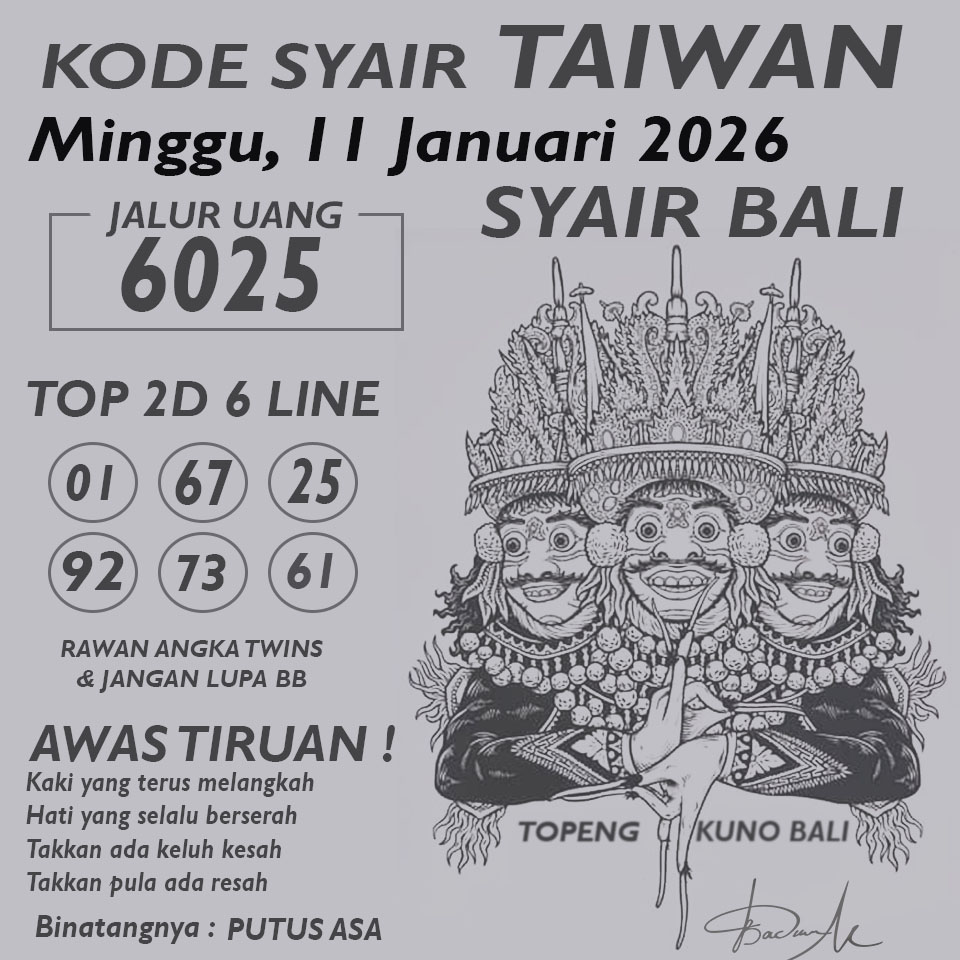 KODE SYAIR TAIWAN
Minggu, 11 Januari 2026
SYAIR BALI
JALUR UANG
6025
TOP 2D 6 LINE
01 67 25
92 73 61
RAWAN ANGKA TWINS
& JANGAN LUPA BB
AWAS TIRUAN !
Kaki yang terus melangkah
Hati yang selalu berserah
Takkan ada keluh kesah
Takkan pula ada resah
Binatangnya : PUTUS ASA
TOPENG KUNO BALI